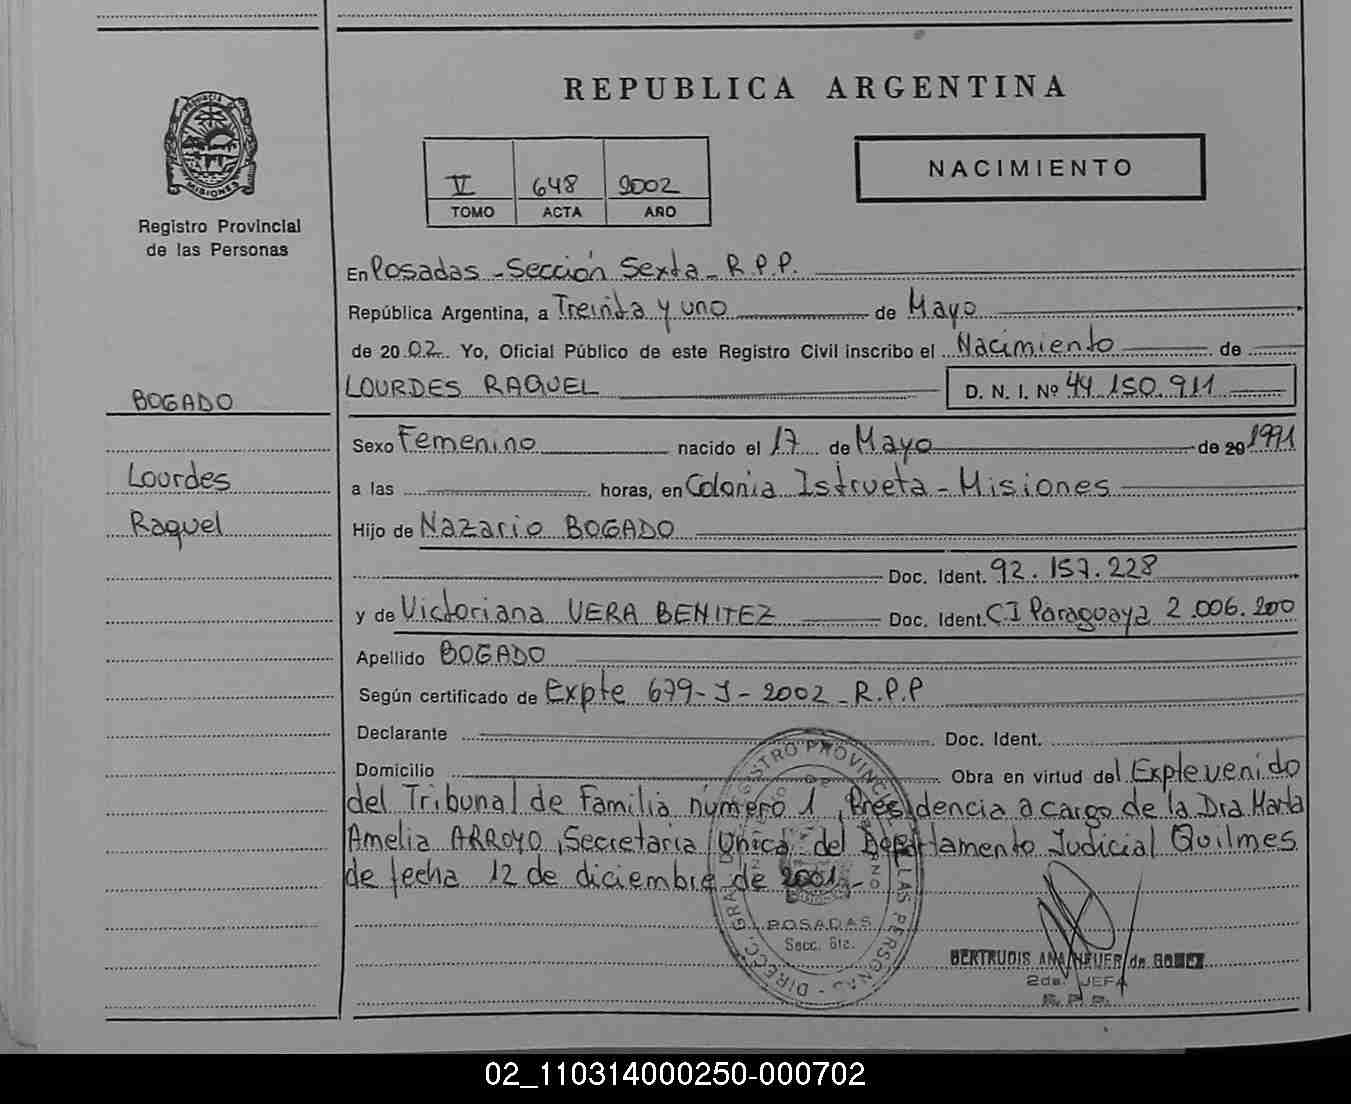 REPUBLICA ARGENTINA
PROVINCIA DE
MISIONES
Registro Provincial
de las Personas
V 648 2002
TOMO ACTA AÑO
NACIMIENTO
En Posadas - Sección Sexta - R.P.P.
República Argentina, a Treinta y uno de Mayo
de 20 02 Yo, Oficial Público de este Registro Civil inscribo el Nacimiento de
LOURDES RAQUEL D. N. I. Nº 44.150.911
BOGADO
Lourdes
Raquel
Sexo Femenino nacido el 17 de Mayo de 20 1991
a las horas, en Colonia Istrueta - Misiones
Hijo de Nazario BOGADO
Doc. Ident. 92.157.228
y de Victoriana VERA BENITEZ Doc. Ident. CI Paraguaya 2.006.200
Apellido BOGADO
Según certificado de Expte 679-J-2002 - R.P.P
Declarante Doc. Ident.
Domicilio Obra en virtud del Expte venido
del Tribunal de Familia número 1, Presidencia a cargo de la Dra Marta
Amelia ARROYO, Secretaria Unica del Departamento Judicial Quilmes
de fecha 12 de diciembre de 2001.-
POSADAS
Secc. 6ta.
BERTRUDIS ANA de
2da. JEFA
R. P. P.
02_110314000250-000702